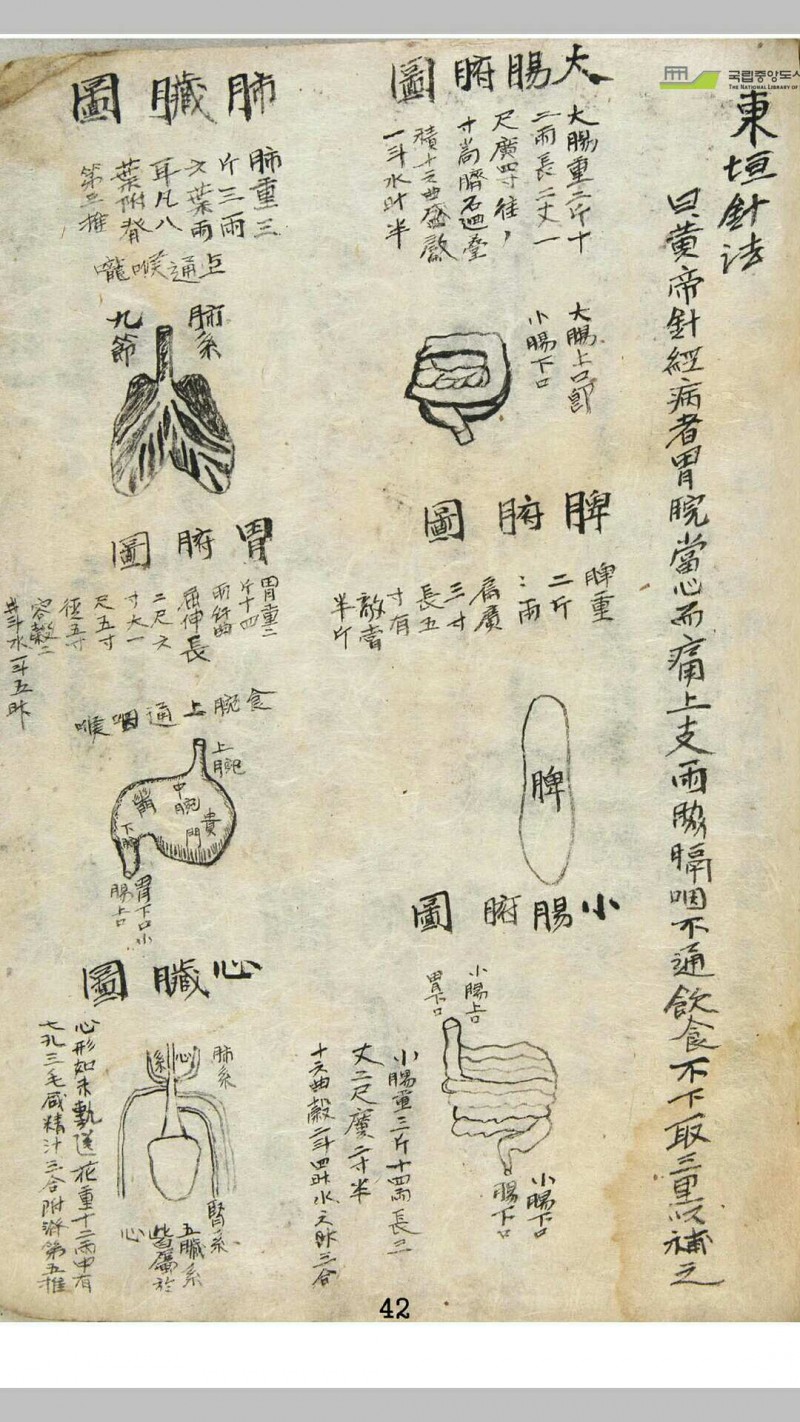 국립중앙도
THE NATIONAL LIBRARY OF
東垣針法
曰黄帝針經病者胃脘當心而痛上支兩脇膈咽不通飲食不下取三里以補之
大腸腑圖
大腸重二斤十
二兩長二丈一
尺廣四寸徑
積十六曲盛穀
一斗水升半
大腸上口即
小腸下口
脾腑圖
脾重
二斤
三兩
扁廣
三寸
長五
寸有
散膏
半斤
脾
小腸腑圖
小腸上口
胃下口
小腸重三斤十四兩長三
丈二尺廣二寸半
十六曲穀二斗四升水六升三合
小腸下口
腸下口
肺臟圖
肺重三
斤三兩
六葉兩
耳凡八
葉附脊
第三推
上通喉嚨
肺系
九節
胃腑圖
胃重二
斤十四
兩紆曲
屈伸長
二尺六
寸大一
尺五寸
徑五寸
容穀二
斗水一斗五升
食脘上通咽喉
上脘
中脘
賁門
下脘
胃下口小
腸上口
心臟圖
肺系
心系
腎系
五臟系
皆屬於
心
心形如未敷蓮花重十二兩中有
七孔三毛盛精汁三合附脊第五推
42